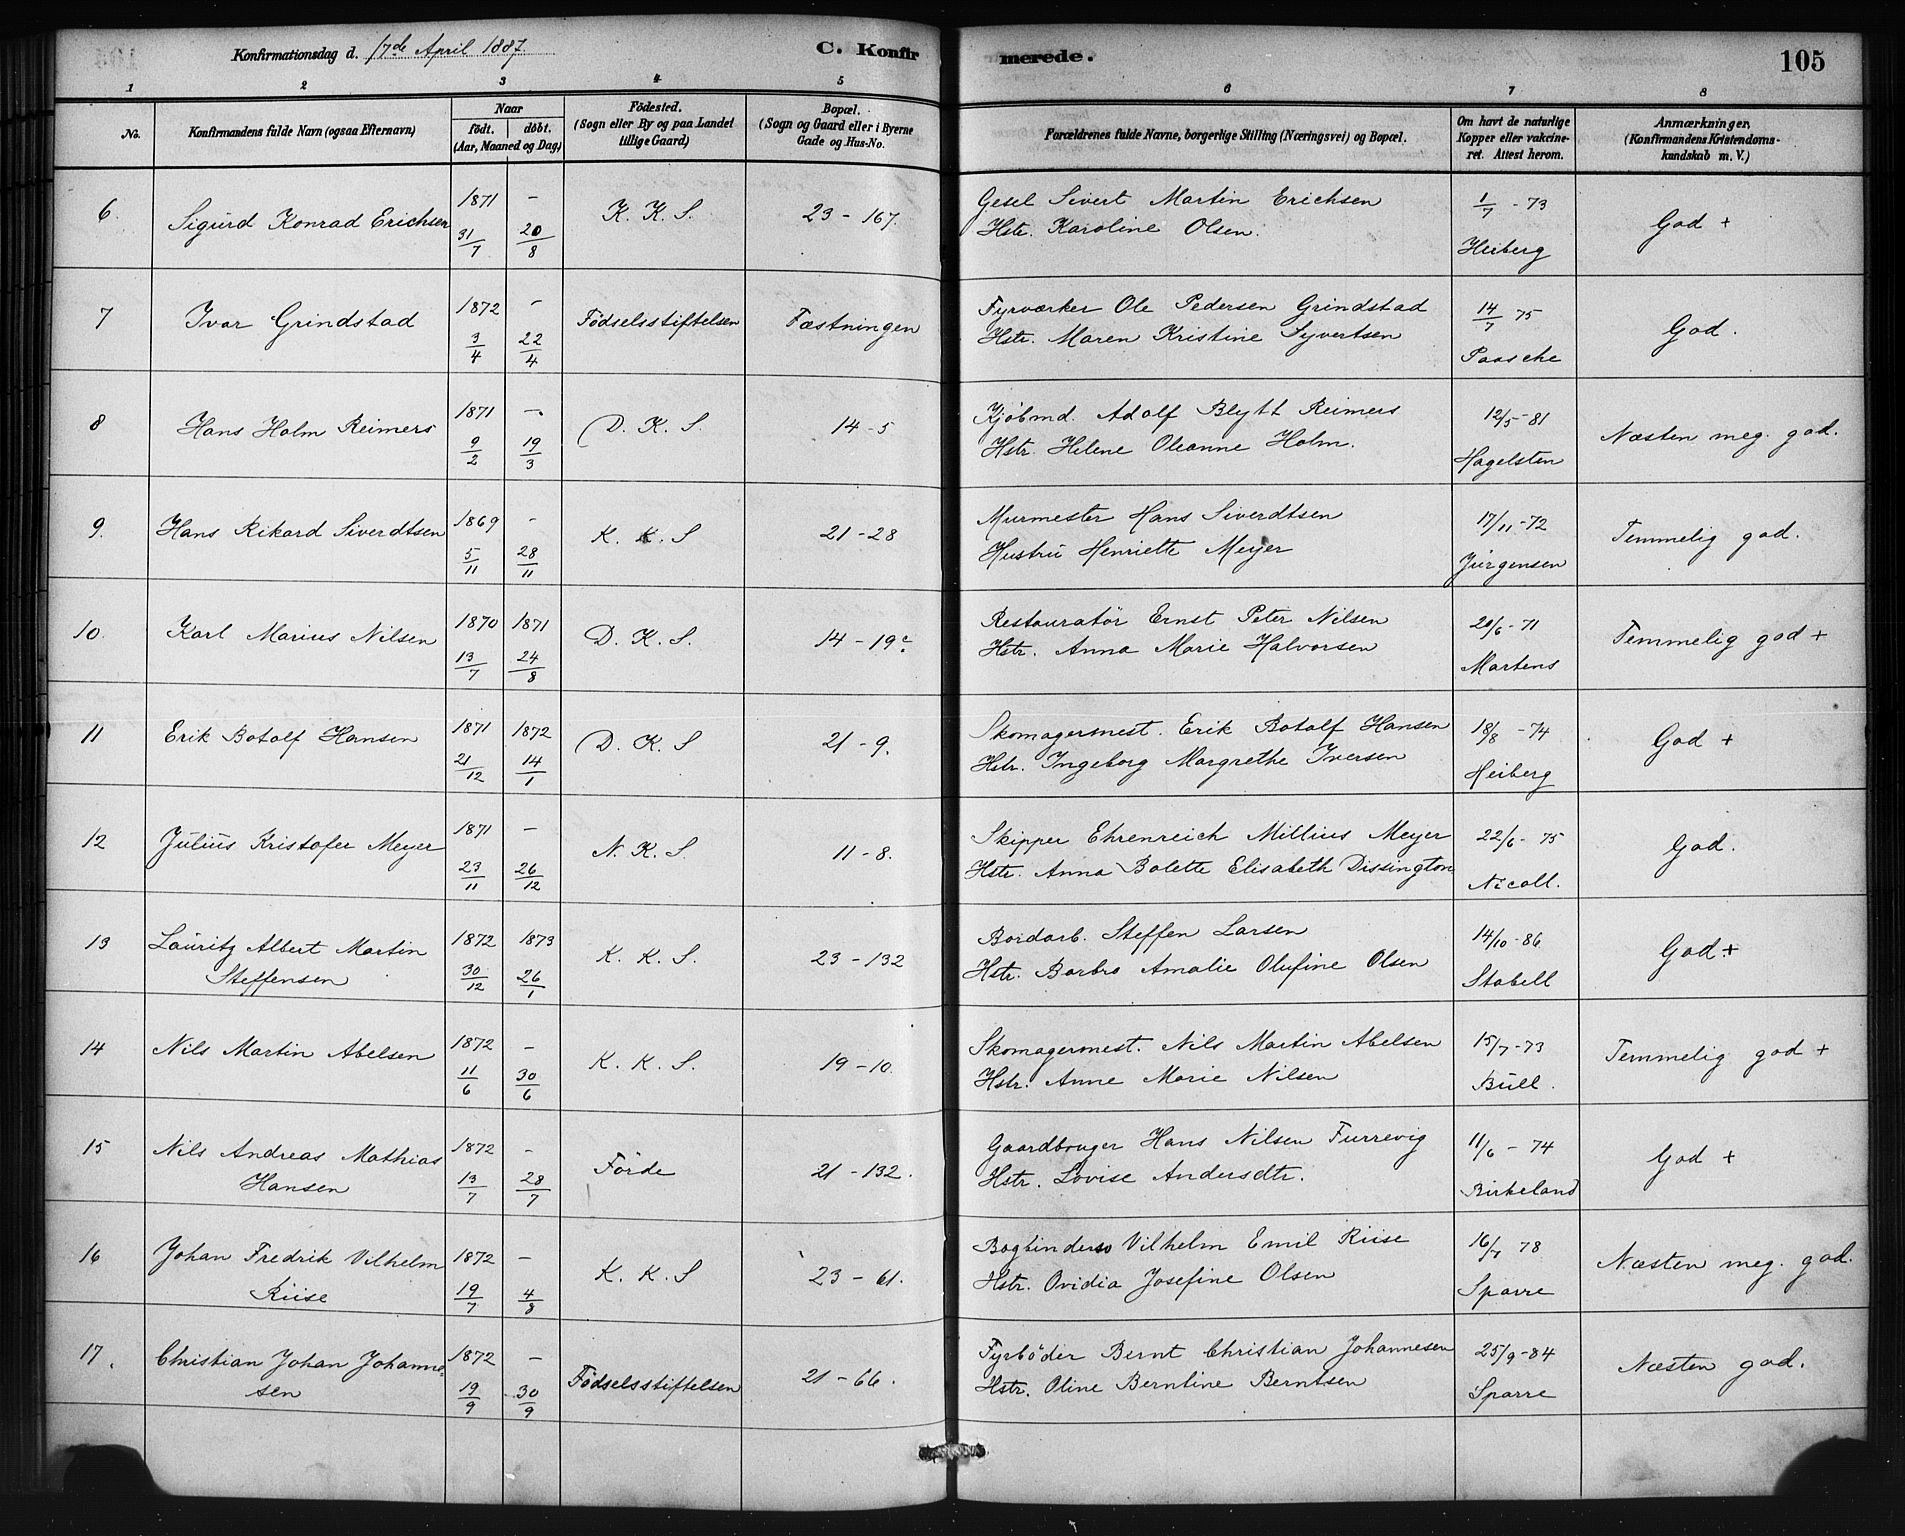 Konfirmationsdag d. 17de April 1887.
C. Konfirmerede.
105
1 2 3 4 5 6 7 8
No.
Konfirmandens fulde Navn (ogsaa Efternavn)
Naar
födt. döbt.
(Aar, Maaned og Dag)
Födested.
(Sogn eller By og paa Landet
tillige Gaard)
Bopæl.
(Sogn og Gaard eller i Byerne
Gade og Hus-No.
Forældrenes fulde Navne, borgerlige Stilling (Næringsvei) og Bopæl.
Om havt de naturlige
Kopper eller vakcine-
ret. Attest herom.
Anmærkninger,
(Konfirmandens Kristendoms-
kundskab m. V.)
6. Sigurd Konrad Erichsen 1871 31/7 – 20/8 K. K. S. 23 – 167.
Gesel Sivert Martin Erichsen
Hstr. Karoline Olsen.
1/7 - 73
Heiberg
God +
7 Ivar Grindstad 1872 3/4 – 22/4 Födselsstiftelsen Fæstningen
Fyrværker Ole Pedersen Grindstad
Hstr. Maren Kristine Syvertsen
14/7 75
Paasche
God.
8 Hans Holm Reimers 1871 9/2 – 19/3 D. K. S. 14 - 5
Kjöbmd. Adolf Blytt Reimers
Hstr. Helene Oleanne Holm.
12/5 - 81
Hagelsten
Næsten meg. god.
9. Hans Rikard Siverdtsen 1869 5/11 – 28/11 K. K. S 21 - 28
Murmester Hans Siverdtsen
Hustru Henriette Meyer
17/11 - 72
Jürgensen
Temmelig god.
10. Karl Marius Nilsen 1870 13/7 1871 24/8 D. K. S. 14 - 19c
Restauratör Ernst Peter Nilsen
Hstr. Anna Marie Halvorsen
20/6 - 71
Martens
Temmelig god +
11 Erik Botolf Hansen 1871 21/12 1872 14/1 D. K. S 21 - 9.
Skomagermest. Erik Botolf Hansen
Hstr. Ingeborg Margrethe Iversen
18/8 - 74
Heiberg
God +
12 Julius Kristofer Meyer 1871 23/11 – 26/12 N. K. S. 11 - 8.
Skipper Ehrenreich Millius Meyer
Hstr. Anna Bolette Elisabeth Dissington
22/6 - 75
Nicoll.
God.
13 Lauritz Albert Martin
Steffensen 1872 30/12 1873 26/1 K. K. S. 23 - 132
Bordarb. Steffen Larsen
Hstr. Barbro Amalie Olufine Olsen
14/10 - 86
Stabell
God +
14 Nils Martin Abelsen 1872 11/6 – 30/6 K. K. S. 19 - 10.
Skomagermest. Nils Martin Abelsen
Hstr. Anne Marie Nilsen
15/7 - 73
Bull.
Temmelig god +
15 Nils Andreas Mathias
Hansen 1872 13/7 – 28/7 Förde 21 - 132.
Gaardbruger Hans Nilsen Furrevig
Hstr. Lovise Andersdtr.
11/6 - 74
Birkeland
God +
16 Johan Fredrik Vilhelm
Riise 1872 19/7 – 4/8 K. K. S 23 - 61.
Bogbinder Vilhelm Emil Riise
Hstr. Ovidia Josefine Olsen
16/7 78
Sparre
Næsten meg. god.
17. Christian Johan Johanne-
sen 1872 19/9 – 30/9 Födselsstiftelsen 21 - 66.
Fyrböder Bernt Christian Johannesen
Hstr. Oline Berntine Berntsen
25/9 - 84
Sparre
Næsten god.